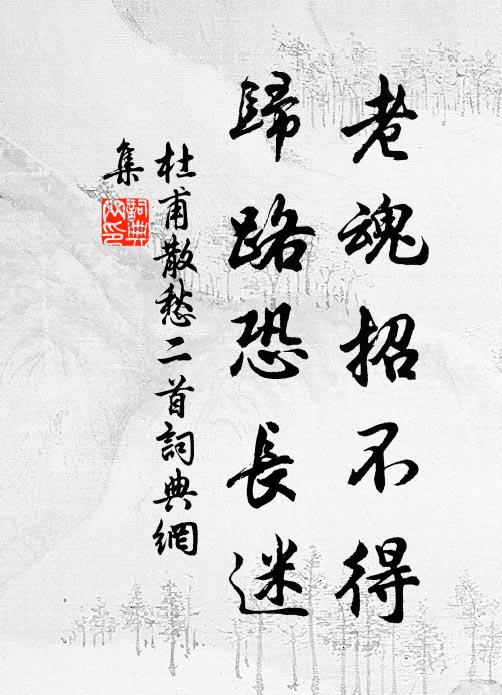 老魂招不得
歸路恐長迷
杜甫散愁二首詞典網
集
詞典網印